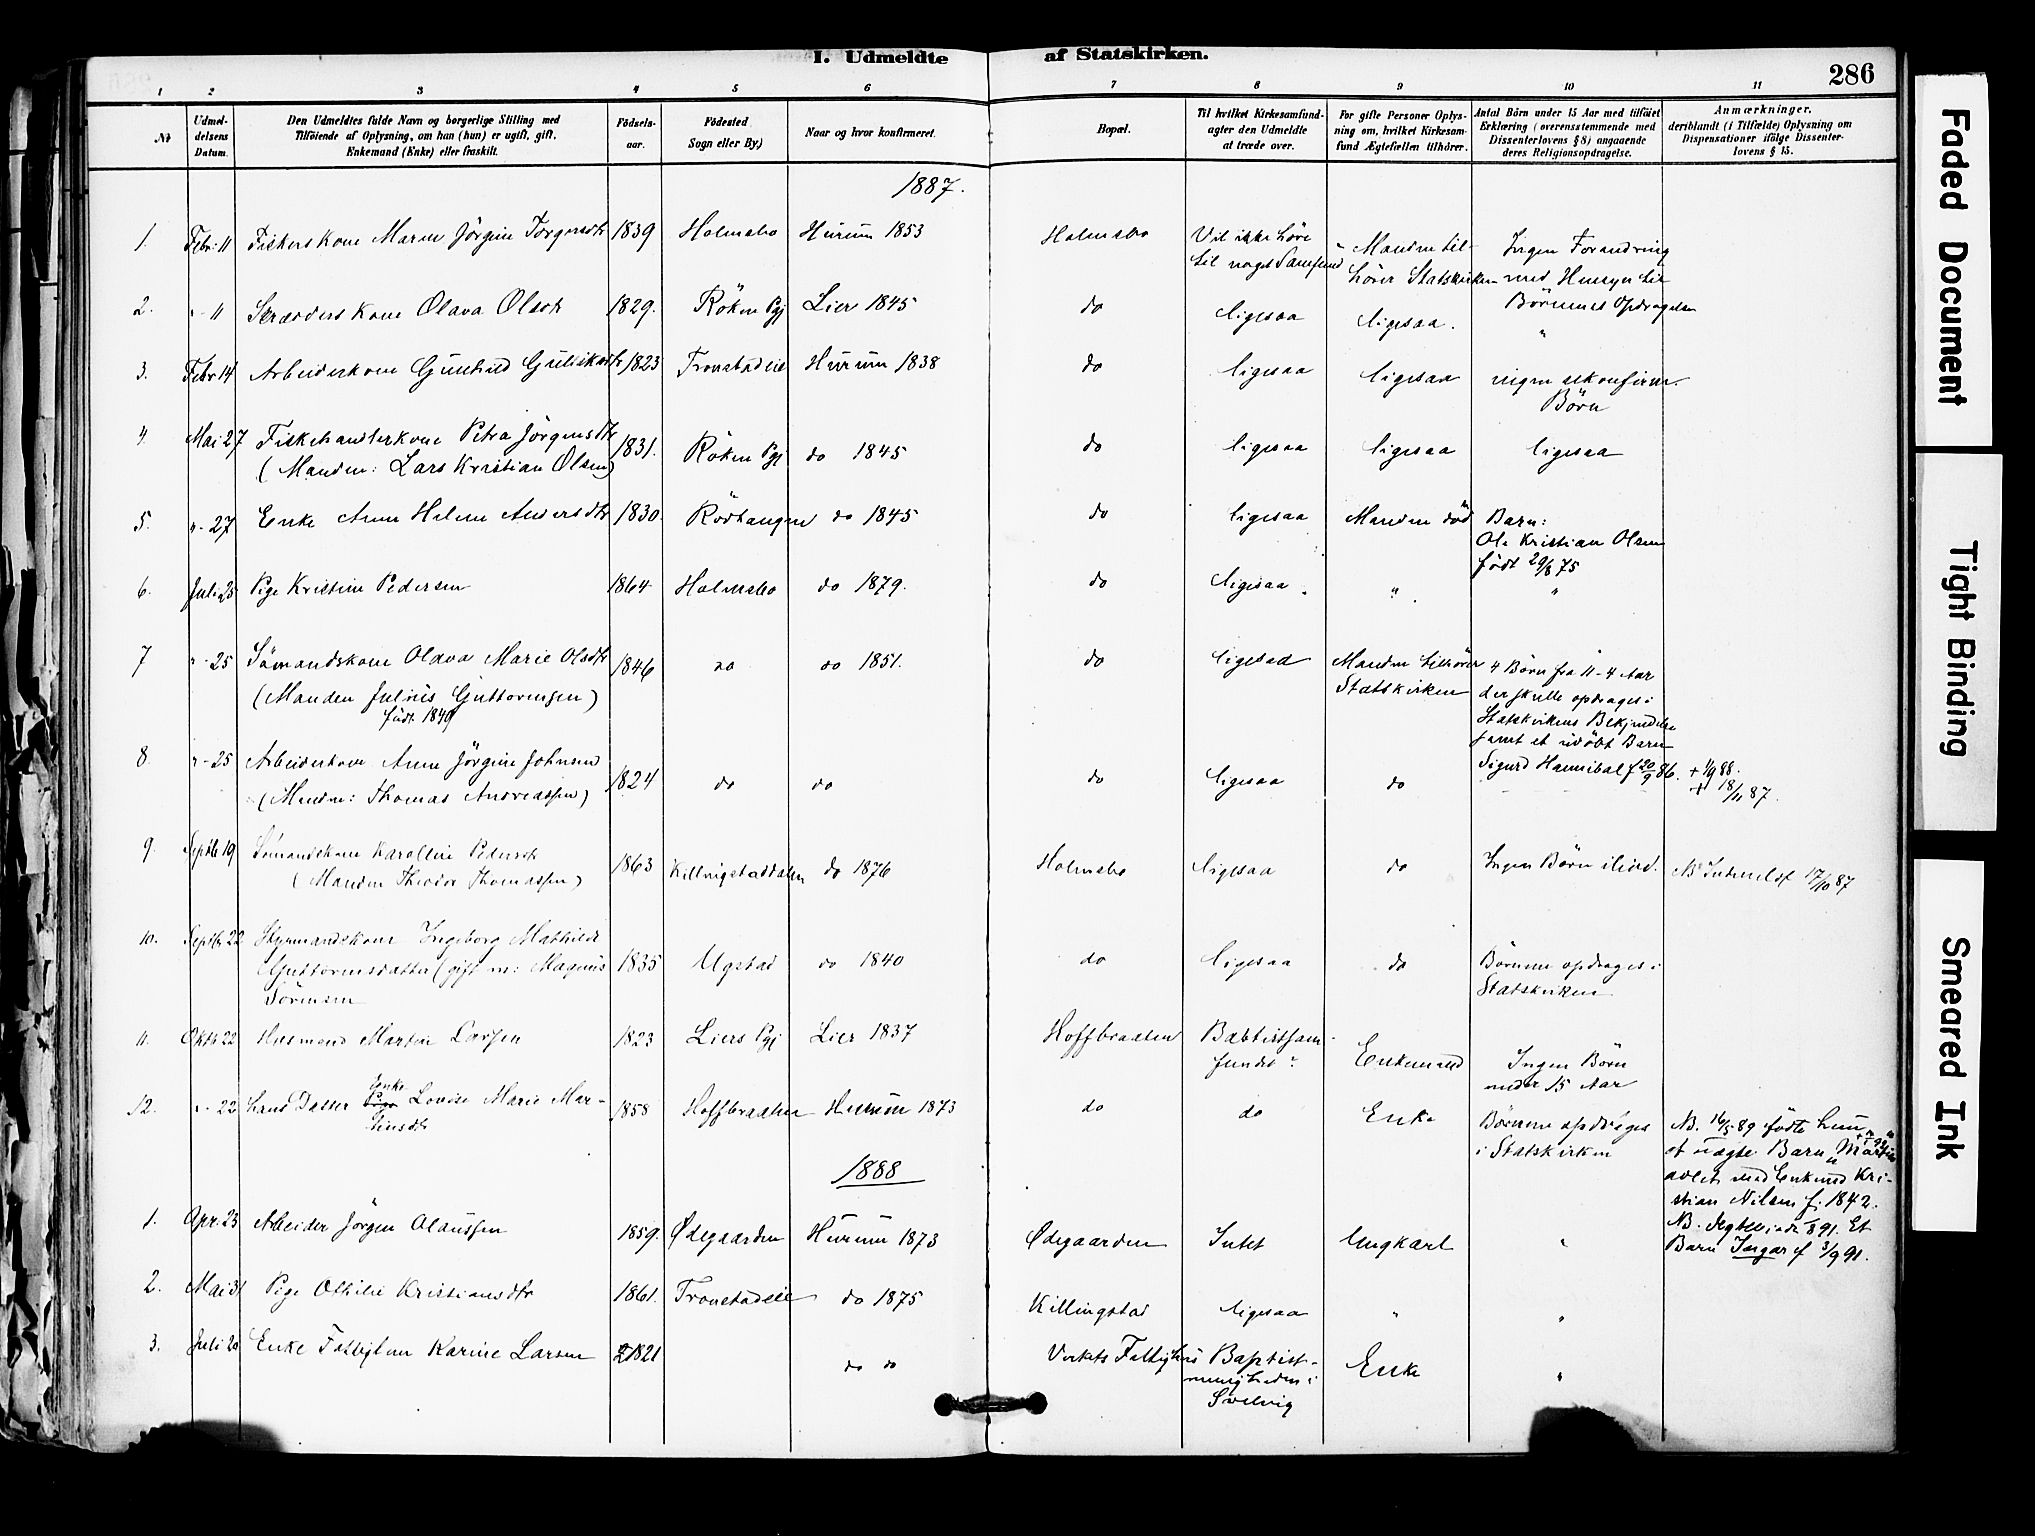 I. Udmeldte af Statskirken.
286
1 2 3 4 5 6 7 8 9 10 11
No
Udmeldelsens Datum.
Den Udmeldtes fulde Navn og borgerlige Stilling med
Tilføiende af Oplysning, om han (hun) er ugift, gift,
Enkemand (Enke) eller fraskilt.
Fødselsaar.
Fødested
Sogn eller By)
Naar og hvor konfirmeret.
Bopæl.
Til hvilket Kirkesamfund-
agter den Udmeldte
at træde over.
For gifte Personer Oplys-
ning om, hvilket Kirkesam-
fund Ægtefællen tilhører.
Antal Børn under 15 Aar med tilføiet
Erklæring (overensstemmende med
Dissenterlovens § 8) angaaende
deres Religionsopdragelse.
Anmærkninger,
deriblandt (i Tilfælde) Oplysning om
Dispensationer ifølge Dissenter-
lovens § 15.
1887.
1. Febr. 11 Fiskerskone Maren Jörgine Torgersdtr 1839 Holmsbo Hurum 1853 Holmsbo Vil ikke höre
til noget Samfund Manden til-
hörer Statskirken Ingen Forandring
med Hensyn til
Börnenes Opdragelse
2. " - 11 Skrædders Kone Olava Olsdtr 1829. Röken Pgj Lier 1845 do ligesaa ligesaa. "
3. Febr 14 Arbeiderkone Gunhild Gulliksdtr 1823 Tronstadeie Hurum 1838 do ligesaa ligesaa ingen ukonfirm.
Börn
4. Mai 27 Fiskehandlerkone Petra Jörgensdtr
(Manden: Lars Kristian Olsen) 1831. Röken Pgj do 1845 do ligesaa ligesaa ligesaa
5. " - 27 Enke Anne Helene Andersdtr 1830. Rödtangen do 1845 do ligesaa Manden död Barn:
Ole Kristian Olsen
födt 29/8 75
6. Juli 25 Pige Kristine Pedersen 1864 Holmsbo do 1879. do ligesaa. " "
7 " - 25 Sömandskone Olava Marie Olsdtr
(Manden Julius Guttormsen)
födt 1849 1846 do do 1851. do ligesaa Manden tilhörer
Statskirken 4 Börn fra 11-4 Aar
der skulle opdrages i
Statskirkens Bekjendelse
samt et udöbt Barn
Sigurd Hannibal f 20/9 86. + 1/9 88.
8. " - 25 Arbeiderkone Anne Jörgine Johnsen
(Manden: Thomas Andreassen) 1824 do do do ligesaa do + 18/11 87.
9. Septbr 19 Sömandskone Karoline Pedersdtr
(Manden Theodor Thomassen) 1863 Killingstaddalen do 1876 Holmsbo ligesaa do Ingen Börn ilive. NB Indmeldt 17/10 87
10. Septbr 22 Styrmandskone Ingeborg Mathilde
Guttormsdatter (gift m: Magnus
Sörensen 1835 Ugstad do 1840 do ligesaa do Börnene opdrages i
Statskirken
11. Oktb 22 Husmand Martin Larssen 1823 Liers Pgj Lier 1837 Hoffbraaten Babtistsam-
fundet Enkemand Ingen Börn
under 15 Aar
12. " - 22 hans Datter Enke Pige Lovise Marie Mar-
tinsdtr 1858 Hoffbraaten Hurum 1873 do do Enke Börnene opdrages
i Statskirken NB. 16/5 89 födte hun
et uægte Barn Martin
avlet med Enkemd Kri-
stian Nilsen f. 1842.
NB. Et
Barn Ingar f 3/9 91.
1888
1. Apr. 23 Arbeider Jörgen Olaussen 1859. Ødegaarden Hurum 1873 Ødegaarden Intet Ungkarl "
2. Mai 31 Pige Othilie Kristiansdtr 1861. Tronstadeie do 1875 Killingstad ligesaa " "
3. Juli 20 Enke Fattiglem Karine Larsen 1821 do do Verkets Fattighus Baptist-
menigheden i
Svelvig Enke "
Faded Document
Tight Binding
Smeared Ink